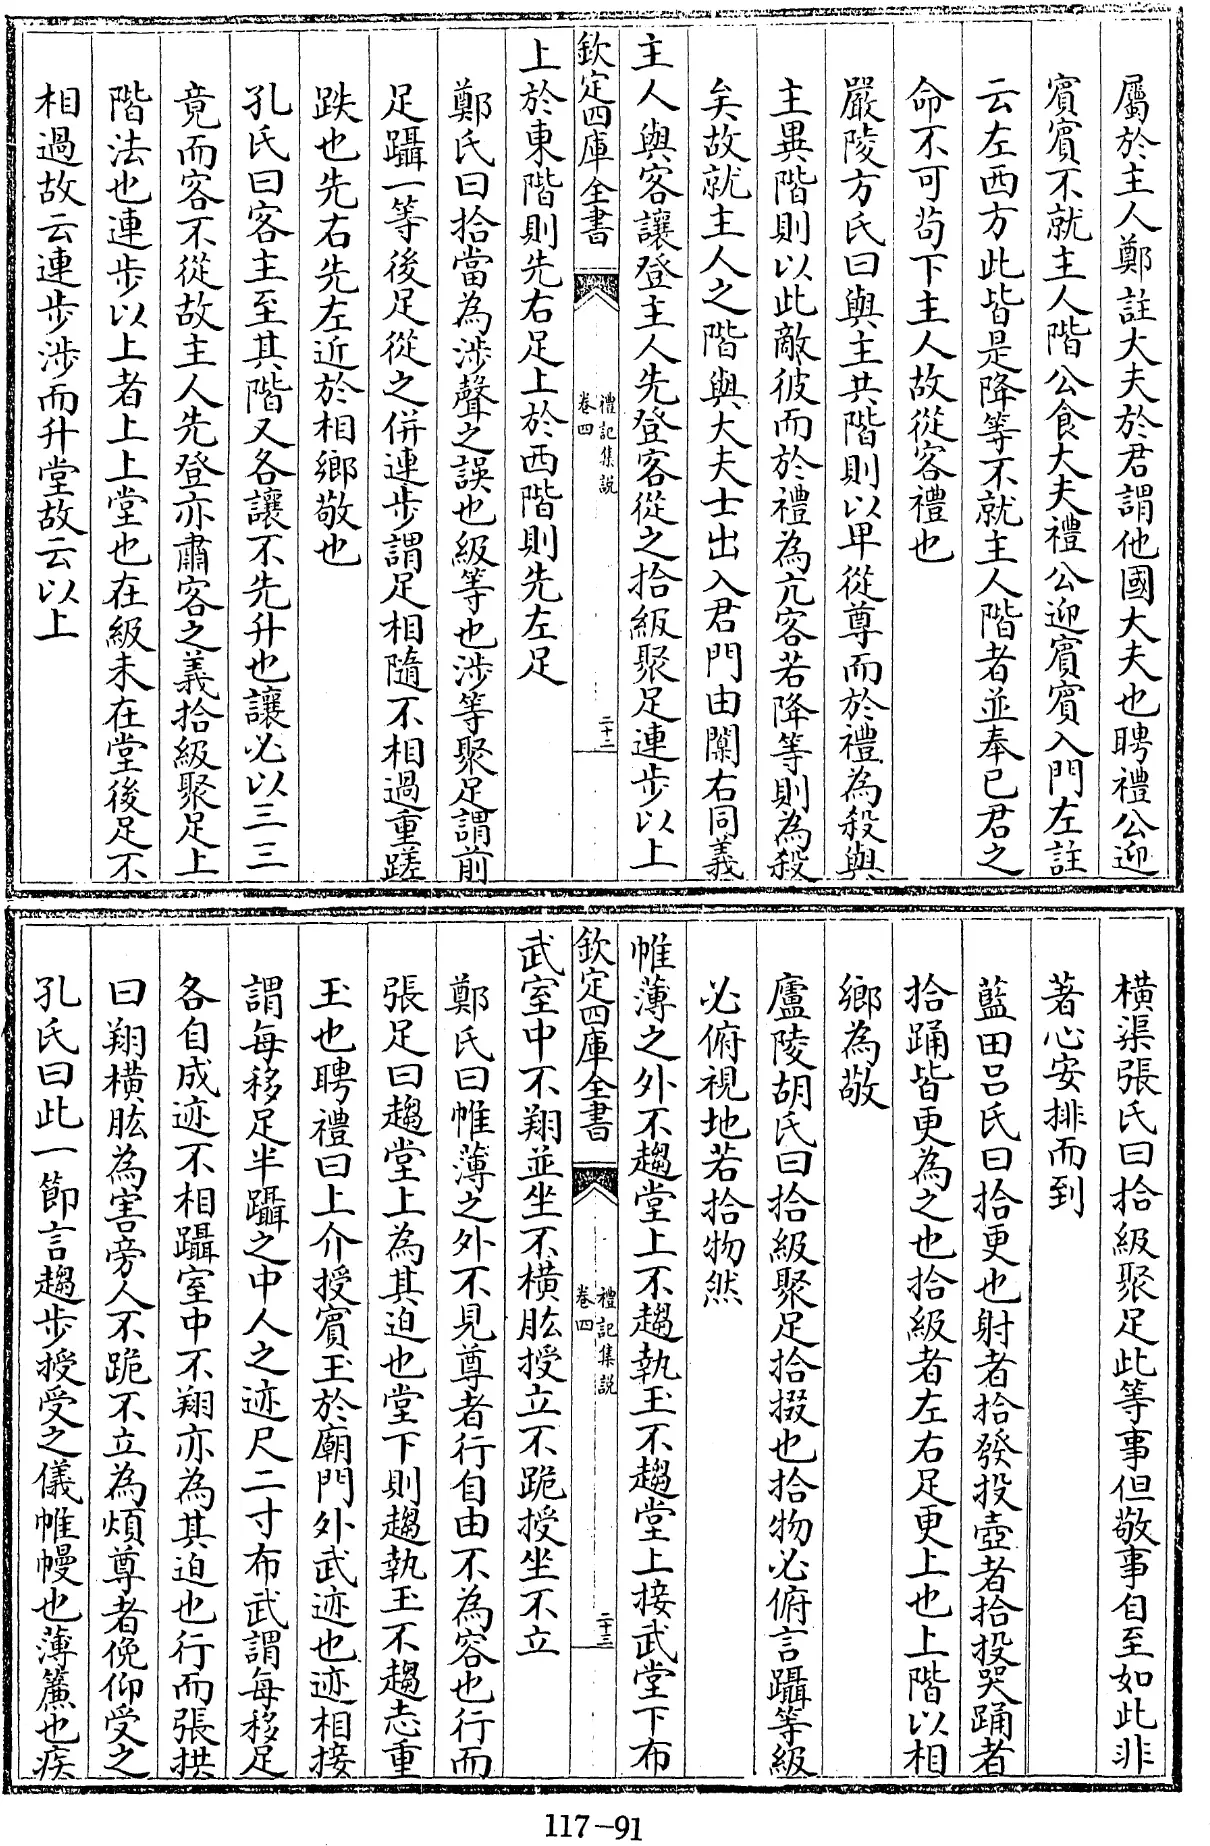 屬於主人鄭註大夫於君謂他國大夫也聘禮公迎
賓賓不就主人階公食大夫禮公迎賓賓入門左註
云左西方此皆是降等不就主人階者並奉已君之
命不可苟下主人故從客禮也
嚴陵方氏曰與主共階則以卑從尊而於禮為殺與
主異階則以此敵彼而於禮為亢客若降等則為殺
矣故就主人之階與大夫士出入君門由闑右同義
主人與客讓登主人先登客從之拾級聚足連步以上
欽定四庫全書
禮記集說
卷四
二十二
上於東階則先右足上於西階則先左足
鄭氏曰拾當為涉聲之誤也級等也涉等聚足謂前
足躡一等後足從之併連步謂足相隨不相過重蹉
跌也先右先左近於相鄉敬也
孔氏曰客主至其階又各讓不先升也讓必以三三
竟而客不從故主人先登亦肅客之義拾級聚足上
階法也連步以上者上上堂也在級未在堂後足不
相過故云連步涉而升堂故云以上
橫渠張氏曰拾級聚足此等事但敬事自至如此非
著心安排而到
藍田呂氏曰拾更也射者拾發投壺者拾投哭踊者
拾踊皆更為之也拾級者左右足更上也上階以相
鄉為敬
廬陵胡氏曰拾級聚足拾掇也拾物必俯言躡等級
必俯視地若拾物然
帷薄之外不趨堂上不趨執玉不趨堂上接武堂下布
欽定四庫全書
禮記集說
卷四
二十三
武室中不翔並坐不橫肱授立不跪授坐不立
鄭氏曰帷薄之外不見尊者行自由不為容也行而
張足曰趨堂上為其迫也堂下則趨執玉不趨志重
玉也聘禮曰上介授賓玉於廟門外武迹也迹相接
謂每移足半躡之中人之迹尺二寸布武謂每移足
各自成迹不相躡室中不翔亦為其迫也行而張拱
曰翔橫肱為害旁人不跪不立為煩尊者俛仰受之
孔氏曰此一節言趨步授受之儀帷幔也薄簾也疾
117-91